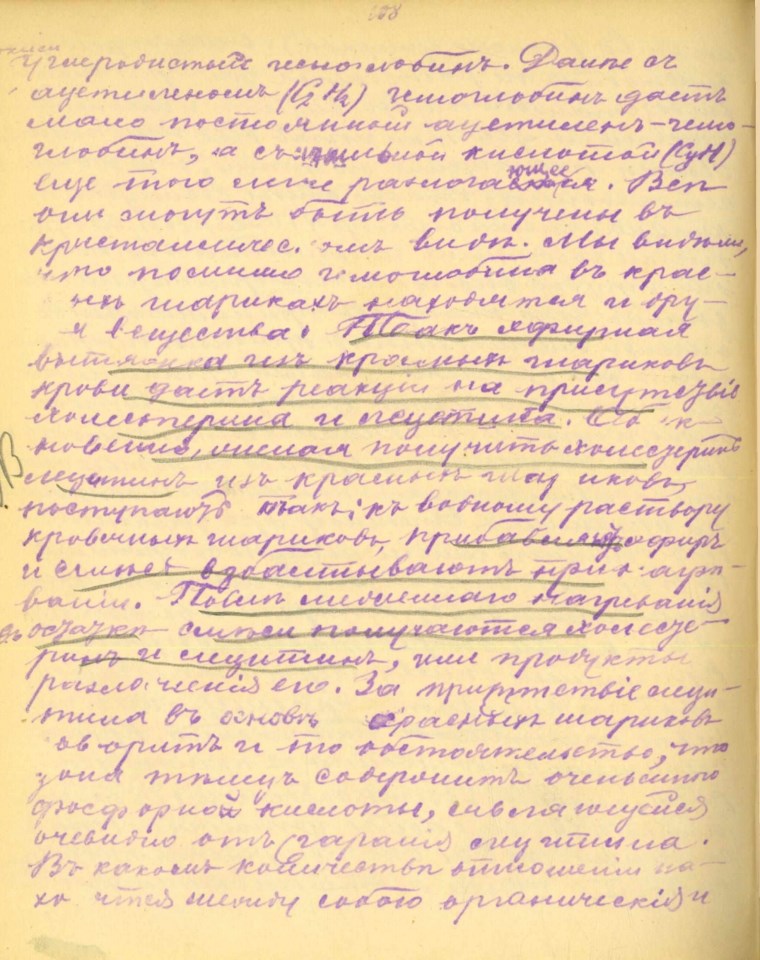 108
окиси
Углеродистый гемоглобинъ. Далѣе съ
ацетиленомъ (C2H2) гемоглобинъ даетъ
мало постоянный ацетиленъ-гемо-
глобинъ, а съ синильной кислотой (CyH)
еще того легче разлагающееся. Всѣ
они могутъ быть получены въ
кристалличес. омъ видѣ. Мы видѣли,
что помимо гемоглобина въ крас-
ныхъ шарикахъ находятся и дру-
я вещества. Такъ эфирная
вытяжка изъ красныхъ шариковъ
крови даетъ реакціи на присутствіе
холестерина и лецитина. Об к
новенно, желая получить холестеринъ
лецитинъ изъ красныхъ шар иковъ,
поступаютъ такъ: къ водному раствору
кровяныхъ шариковъ, прибавляютъ эфиръ
и смѣсь взбалтываютъ при нагрѣ-
ваніи. Послѣ медленнаго нагрѣванія
въ остаткѣ смѣси получаются холесте-
ринъ и лецитинъ, или продукты
разложенія его. За присутствіе леци-
тина въ основѣ красныхъ шариковъ
ов оритъ и то обстоятельство, что
зола птицъ содержитъ очень много
фосфорной кислоты, явля ющейся
очевидно отъ сгаранія лецитина.
Въ какомъ количеств. отношеніи на-
хо ятся между собою органическія и